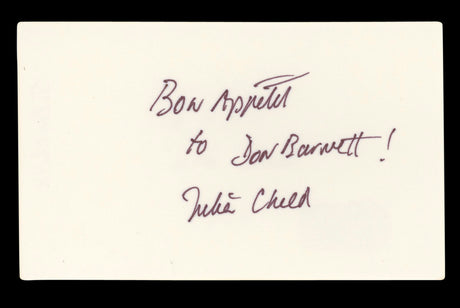 Bon Appétit
to Don Barnett!
Julia Child